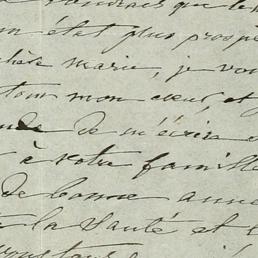 voudrais que le
état plus prospè
chère marie, je vou
tout mon cœur, et
de m'écrire
à votre famille
de bonne anné
la santé et